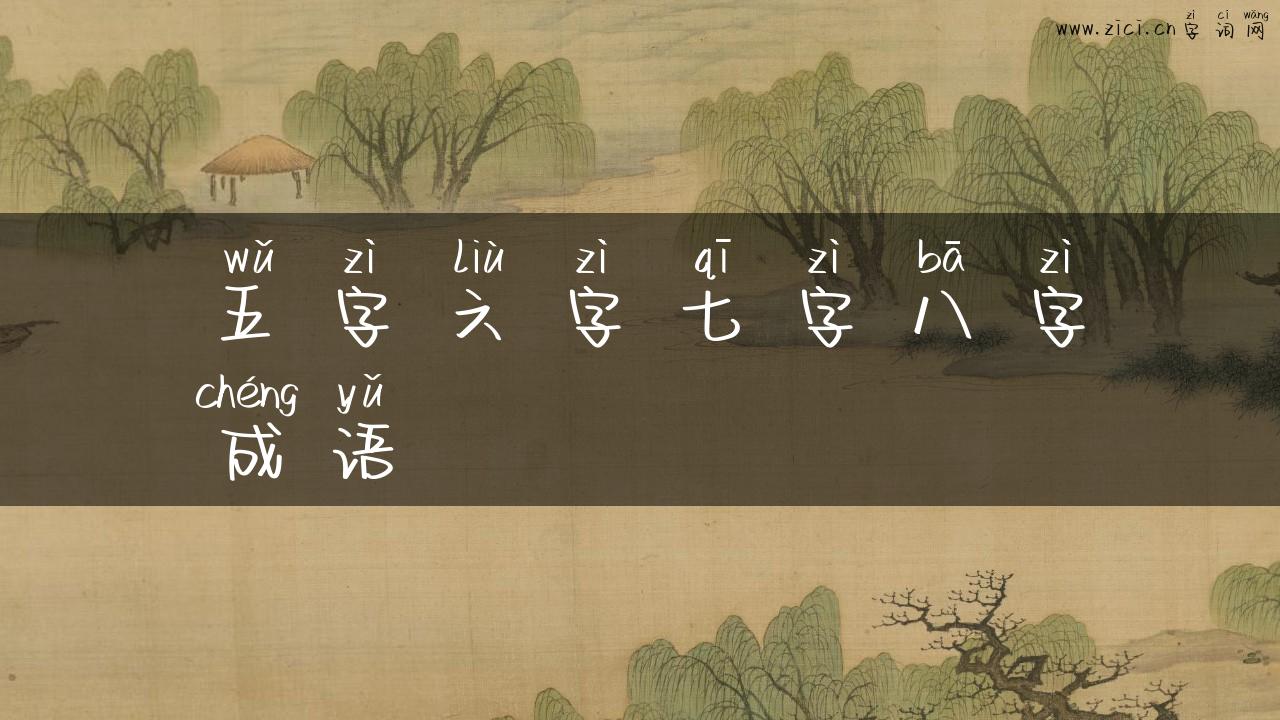 zì cí wǎng
www.zici.cn 字词网
wǔ zì liù zì qī zì bā zì
五字六字七字八字
chéng yǔ
成语